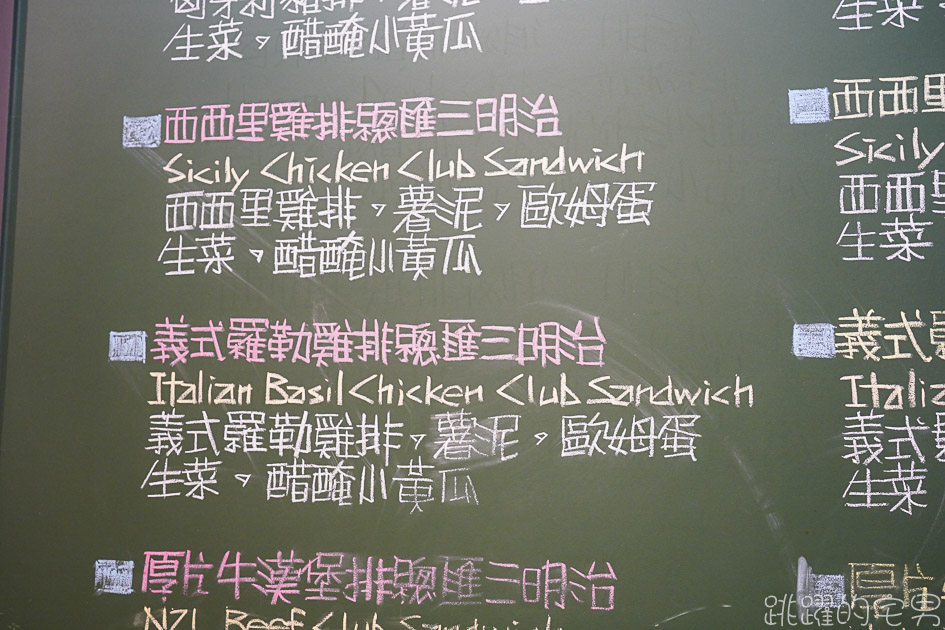 生菜，醋醃小黃瓜
西西里雞排總匯三明治
Sicily Chicken Club Sandwich
西西里雞排，薯泥，歐姆蛋
生菜，醋醃小黃瓜
義式羅勒雞排總匯三明治
Italian Basil Chicken Club Sandwich
義式羅勒雞排，薯泥，歐姆蛋
生菜，醋醃小黃瓜
厚片牛漢堡排總匯三明治
NZL Beef Club Sandwich
生菜
西西里
Sicily
西西里
生菜
義式
Italia
義式
生菜
厚片
跳躍的宅男